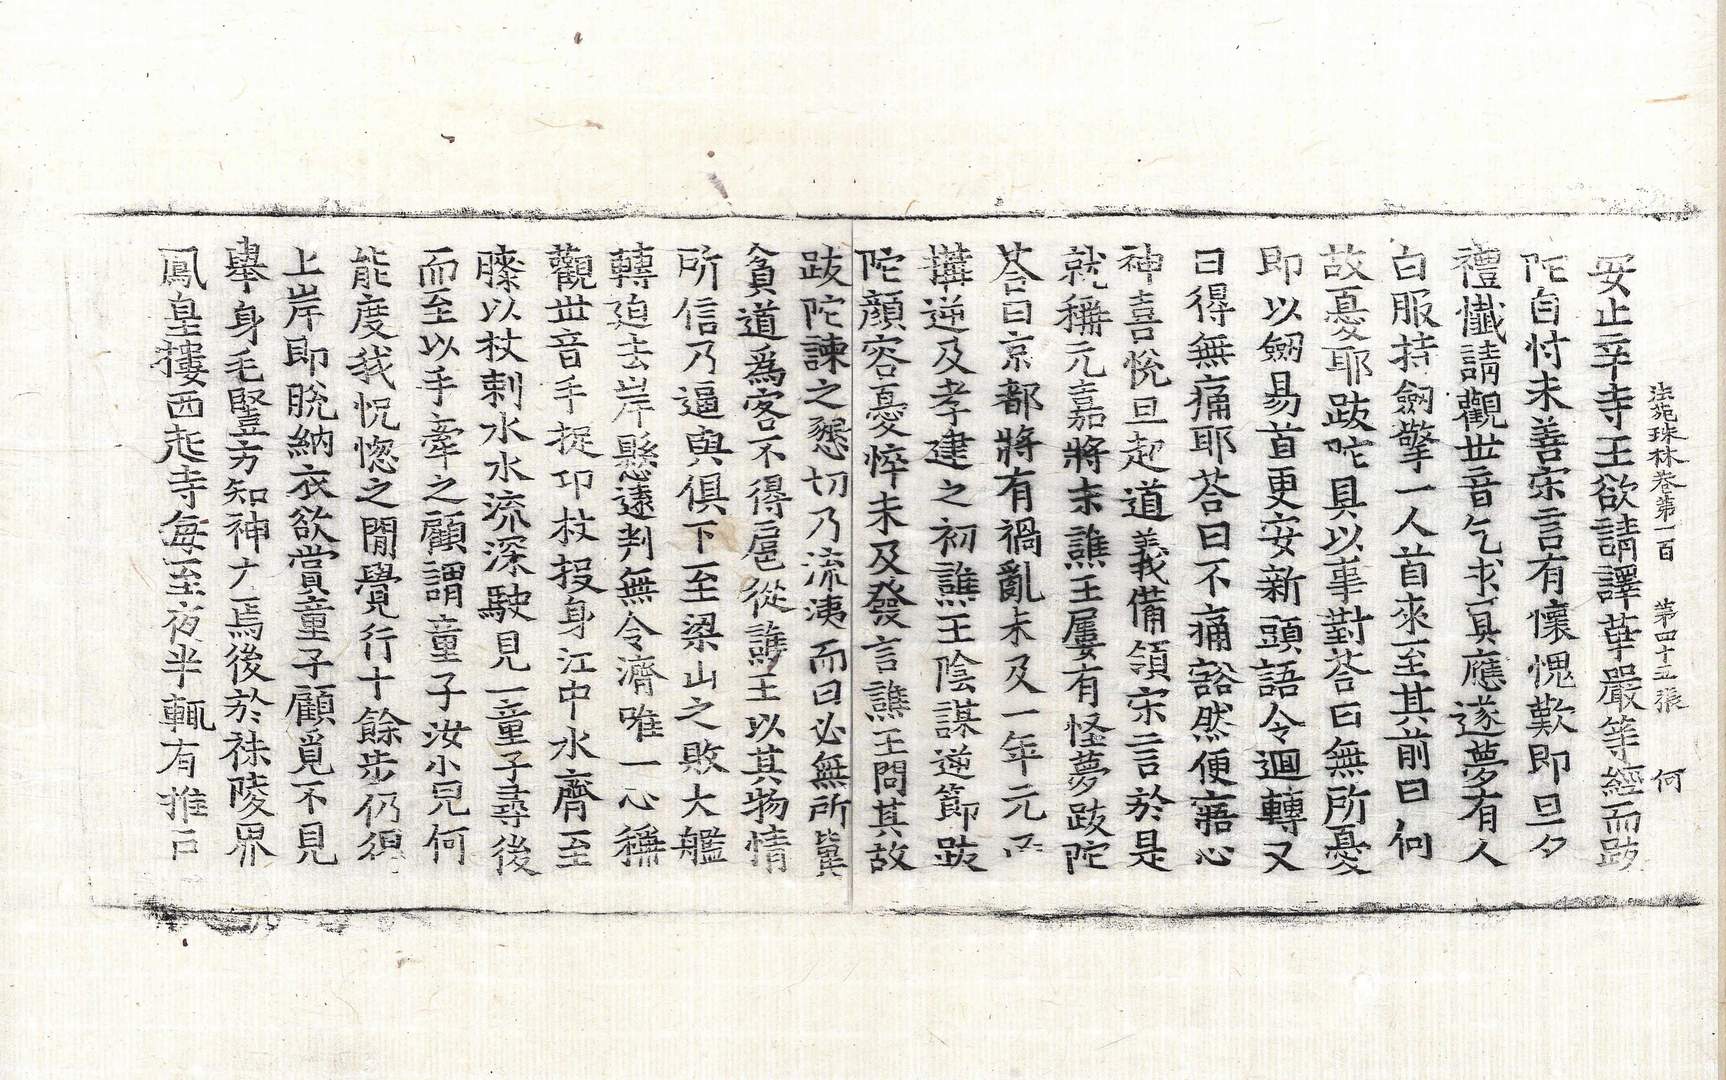 法苑珠林卷第一百 第四十五張 何
安止辛寺王欲請譯華嚴等經而跋
陀自忖未善宋言有懷愧歎即旦夕
禮懺請觀世音乞求冥應遂夢有人
白服持劒擎一人首來至其前曰何
故憂耶跋陀具以事對荅曰無所憂
即以劒易首更安新頭語令迴轉又
曰得無痛耶荅曰不痛豁然便寤心
神喜悅旦起道義備領宋言於是
就稱元嘉將末譙王屢有怪夢跋陀
荅曰京都將有禍亂未及一年元凶
搆逆及孝建之初譙王陰謀逆節跋
陀顏容憂悴未及發言譙王問其故
跋陀諫之懇切乃流洟而曰必無所冀
貧道爲客不得扈從譙王以其物情
所信乃逼與俱下至梁山之敗大艦
轉迫去岸懸遠判無令濟唯一心稱
觀世音手捉卭杖投身江中水齊至
膝以杖刺水水流深駛見一童子尋後
而至以手牽之顧謂童子汝小兒何
能度我怳惚之閒覺行十餘步仍得
上岸即脫納衣欲賞童子顧覓不見
舉身毛豎方知神力焉後於秣陵界
鳳皇樓西起寺每至夜半輒有推戶